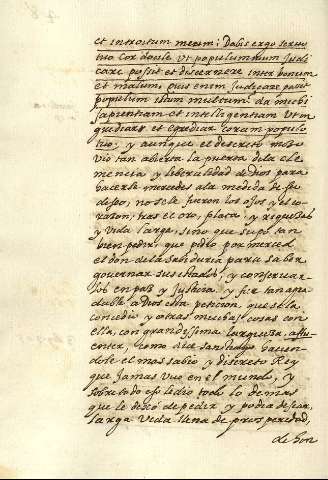 et introitum meum; Dabis ergo servo
tuo Cor docile ut populum tuum Judi
care possit et discernere inter bonum
et malum, quis enim Judicare potest
populum istum multum. da mihi
sapientiam et intelligentiam ut in
grediar et egrediar coram populo
tuo, y aunque el discreto mozo
vio tan abierta la puerta de la cle
mencia y liberalidad de Dios para
hacerle mercedes a la medida de su
deseo, no se le fueron los ojos y el co
razon, tras el oro, plata, y riquezas
y vida larga, sino que supo tan
bien pedir, que pidio por merced
el don de la sabiduria para saber
governar sus estados, y conservar
los en paz y Justicia y fue tan agra
dable a Dios esta peticion, que se la
concedio y otras muchas cosas con
ella, con grandissima largueza, aflu
enter, como dice Santiago hacien
dole el mas sabio y discreto Rey
que jamas vuo en el mundo, y
sobre todo esso le dio todo lo demas
que le dexo de pedir y podia desear,
larga vida llena de prosperidad,
de hon